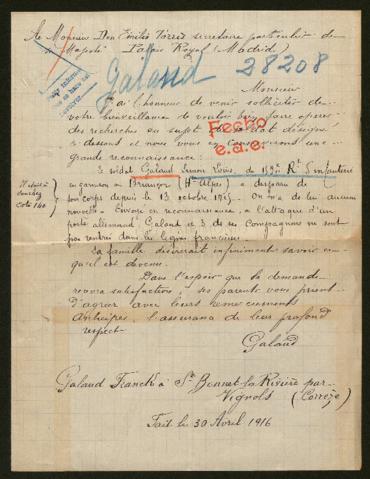 Monsieur Don Emilio Torres secretaire particulier de
Sa Majesté Palais Royal (Madrid)
Galaud 28208
Monsieur
J'ai l'honneur de venir solliciter de
votre bienveillance de vouloir bien faire opérer
des recherches au sujet du soldat désigné
ci dessous et nous vous en conserverons une
grande reconnaissance:
Fecho
e.a.e.
Le soldat Galaud Simon Louis, du 159e Rt d'infanterie
en garnison a Briançon (Htes Alpes) a disparu de
son corps depuis le 13 octobre 1915. On n'a de lui aucune
cote 140
nouvelle. Envoyé en reconnaissance, à l'attaque d'un
poste allemand Galaud et 3 de ses Compagnons ne sont
pas rentrés dans les lignes françaises.
Sa famille désirerait infiniment savoir ce
qu'il est devenu.
Dans l'espoir que la demande
recevra satisfaction, ses parents vous prient
d'agréer avec leurs remerciements
anticipés l'assurance de leur profond
respect.
Galaud
Galaud Franck à St Bonnet-la-Rivière par
Vignols (Corrèze)
Fait le 30 Avril 1916